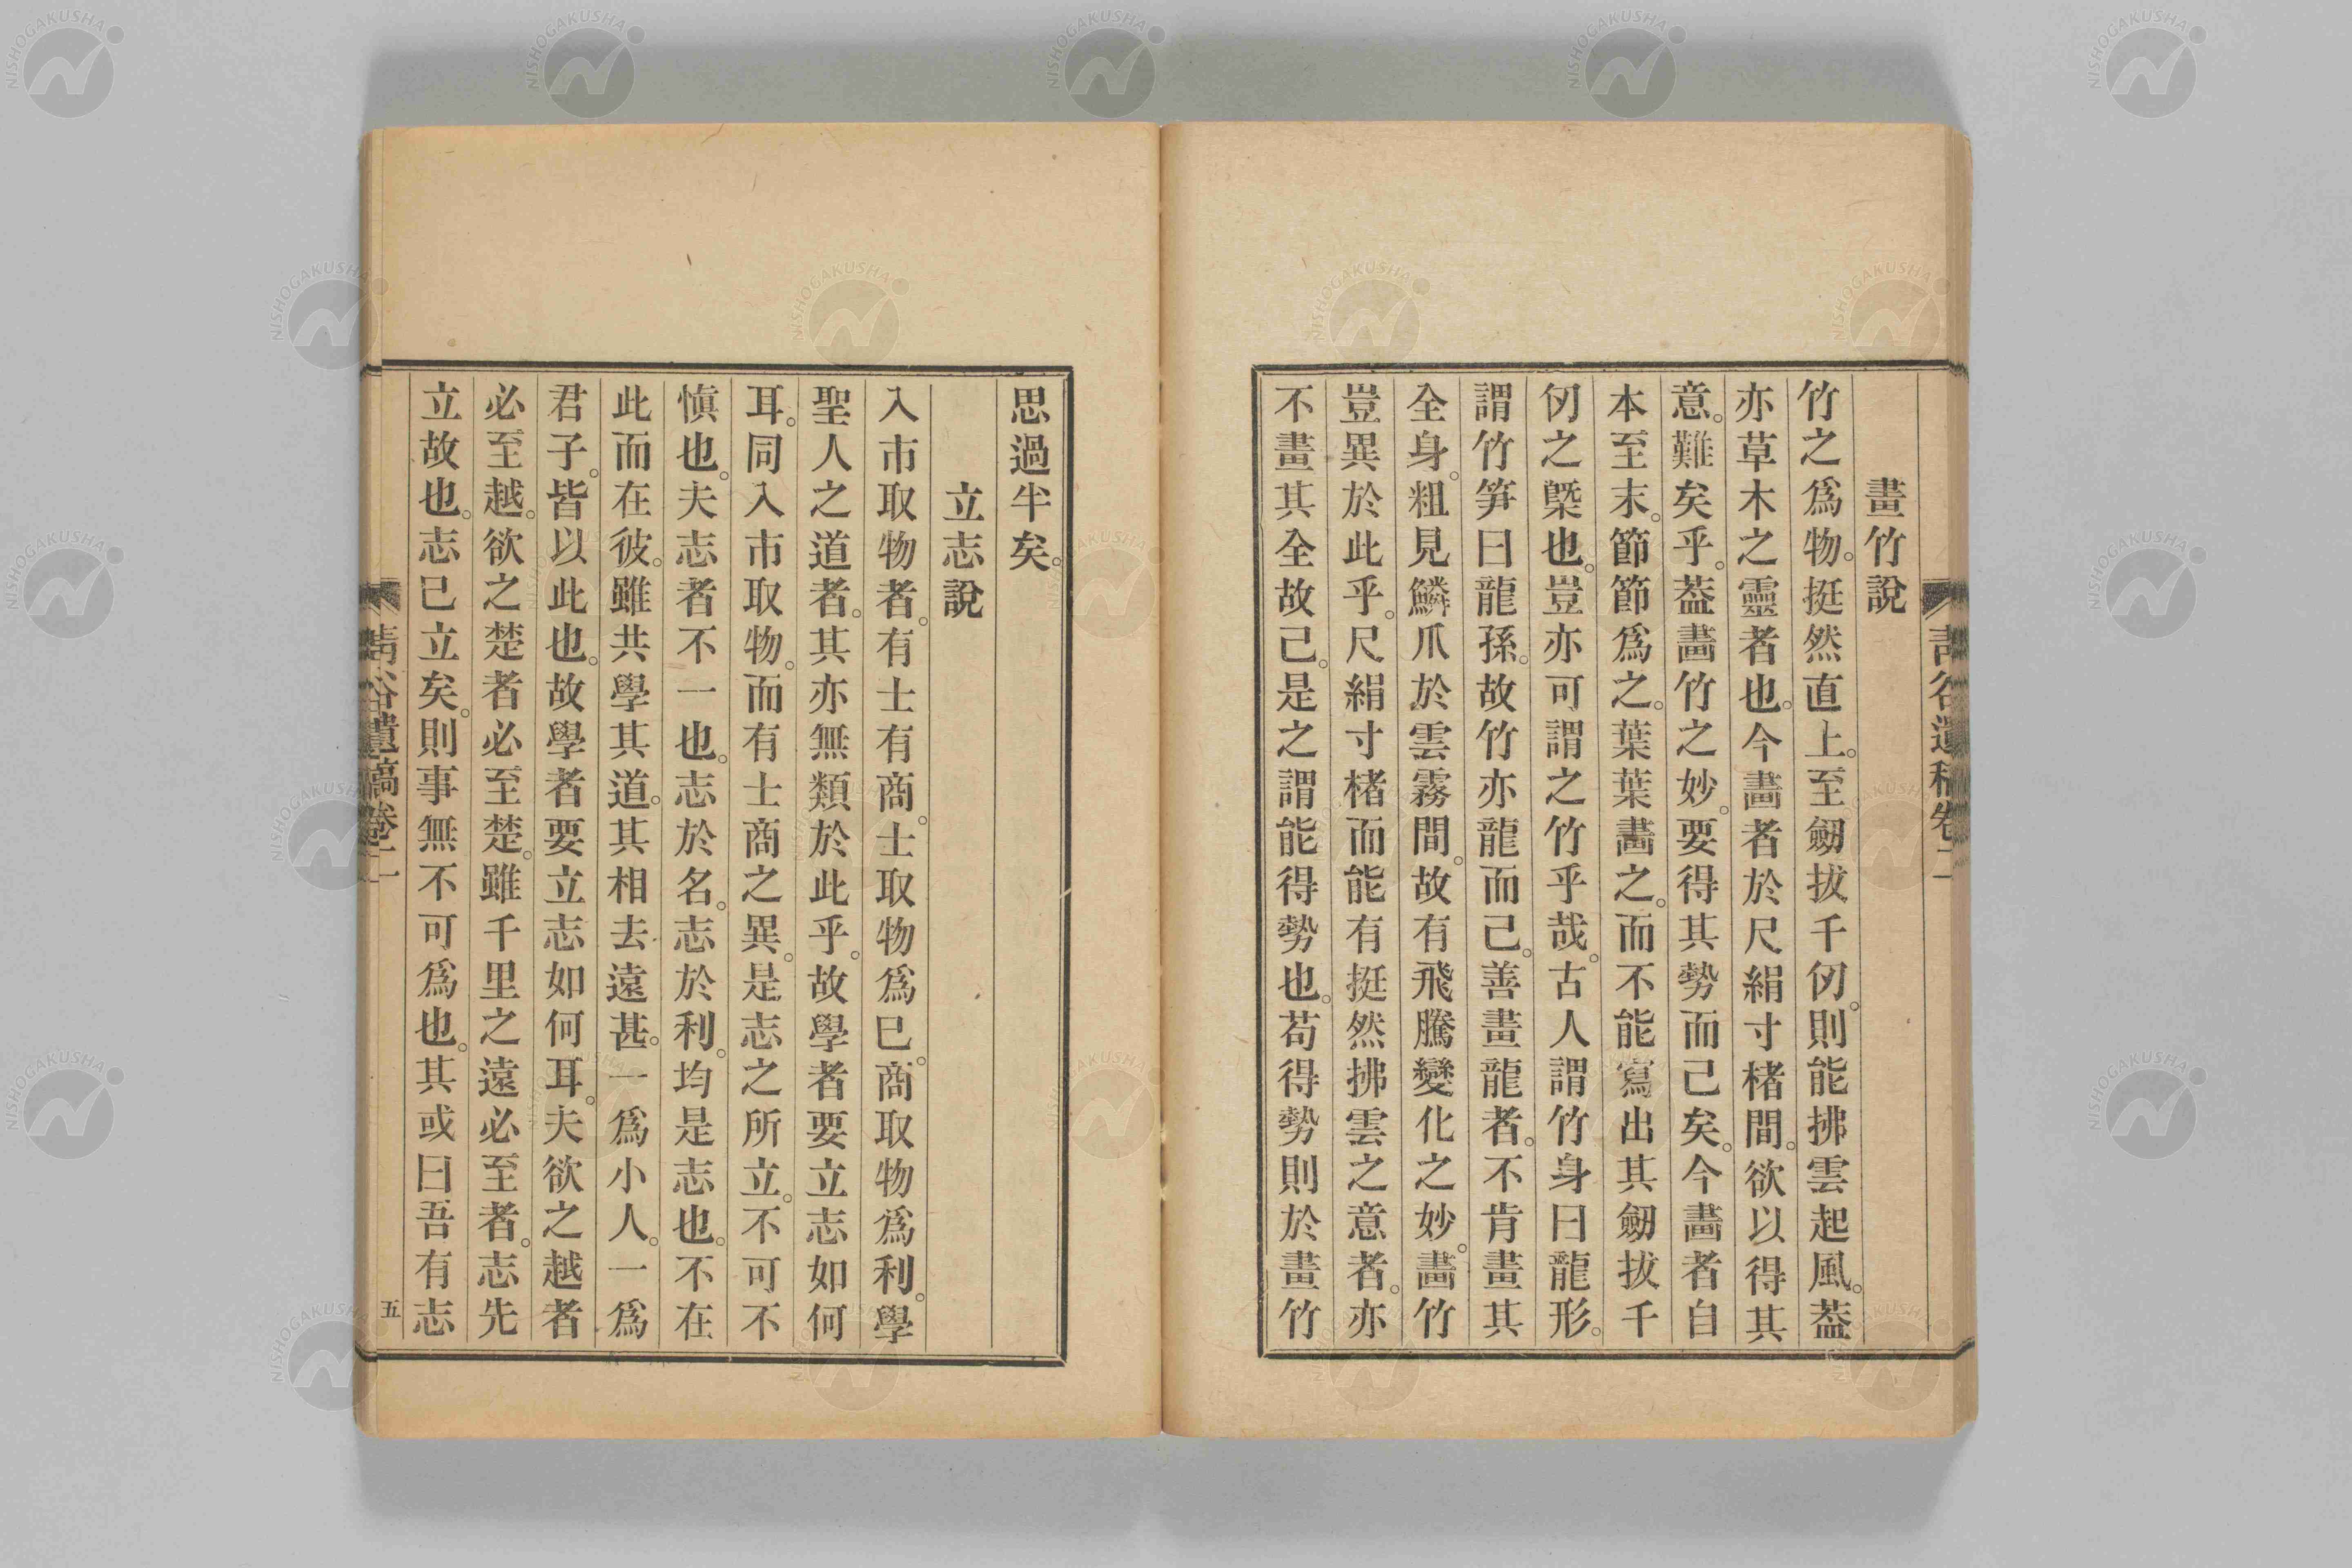 畫竹說
竹之爲物。挺然直上。至劒拔千仞。則能拂雲起風。葢
亦草木之靈者也。今畵者於尺絹寸楮間。欲以得其
意。難矣乎。葢畵竹之妙。要得其勢而已矣。今畵者自
本至末。節節爲之。葉葉畵之。而不能寫出其劒拔千
仞之槩也。豈亦可謂之竹乎哉。古人謂竹身曰龍形。
謂竹笋曰龍孫。故竹亦龍而已。善畫龍者。不肯畫其
全身。粗見鱗爪於雲霧間。故有飛騰變化之妙。畵竹
豈異於此乎。尺絹寸楮而能有挺然拂雲之意者。亦
不畫其全故已。是之謂能得勢也。苟得勢則於畫竹
思過半矣。
立志說
入市取物者。有士有商。士取物爲已。商取物爲利。學
聖人之道者。其亦無類於此乎。故學者要立志如何
耳。同入市取物。而有士商之異。是志之所立。不可不
愼也。夫志者不一也。志於名。志於利。均是志也。不在
此而在彼。雖共學其道。其相去遠甚。一爲小人。一爲
君子。皆以此也。故學者要立志如何耳。夫欲之越者
必至越。欲之楚者必至楚。雖千里之遠必至者。志先
立故也。志已立矣。則事無不可爲也。其或曰吾有志
谷遺稿卷二
五
NISHOGAKUSHA